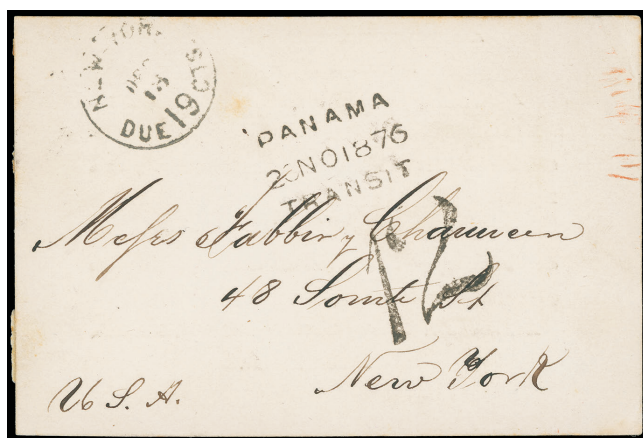 NEW YORK
DEC
13
DUE 19 CTS
PANAMA
NO 1876
TRANSIT
Messrs Fabbri y Chauncen
12
48 Somte St
New York
U S. A.